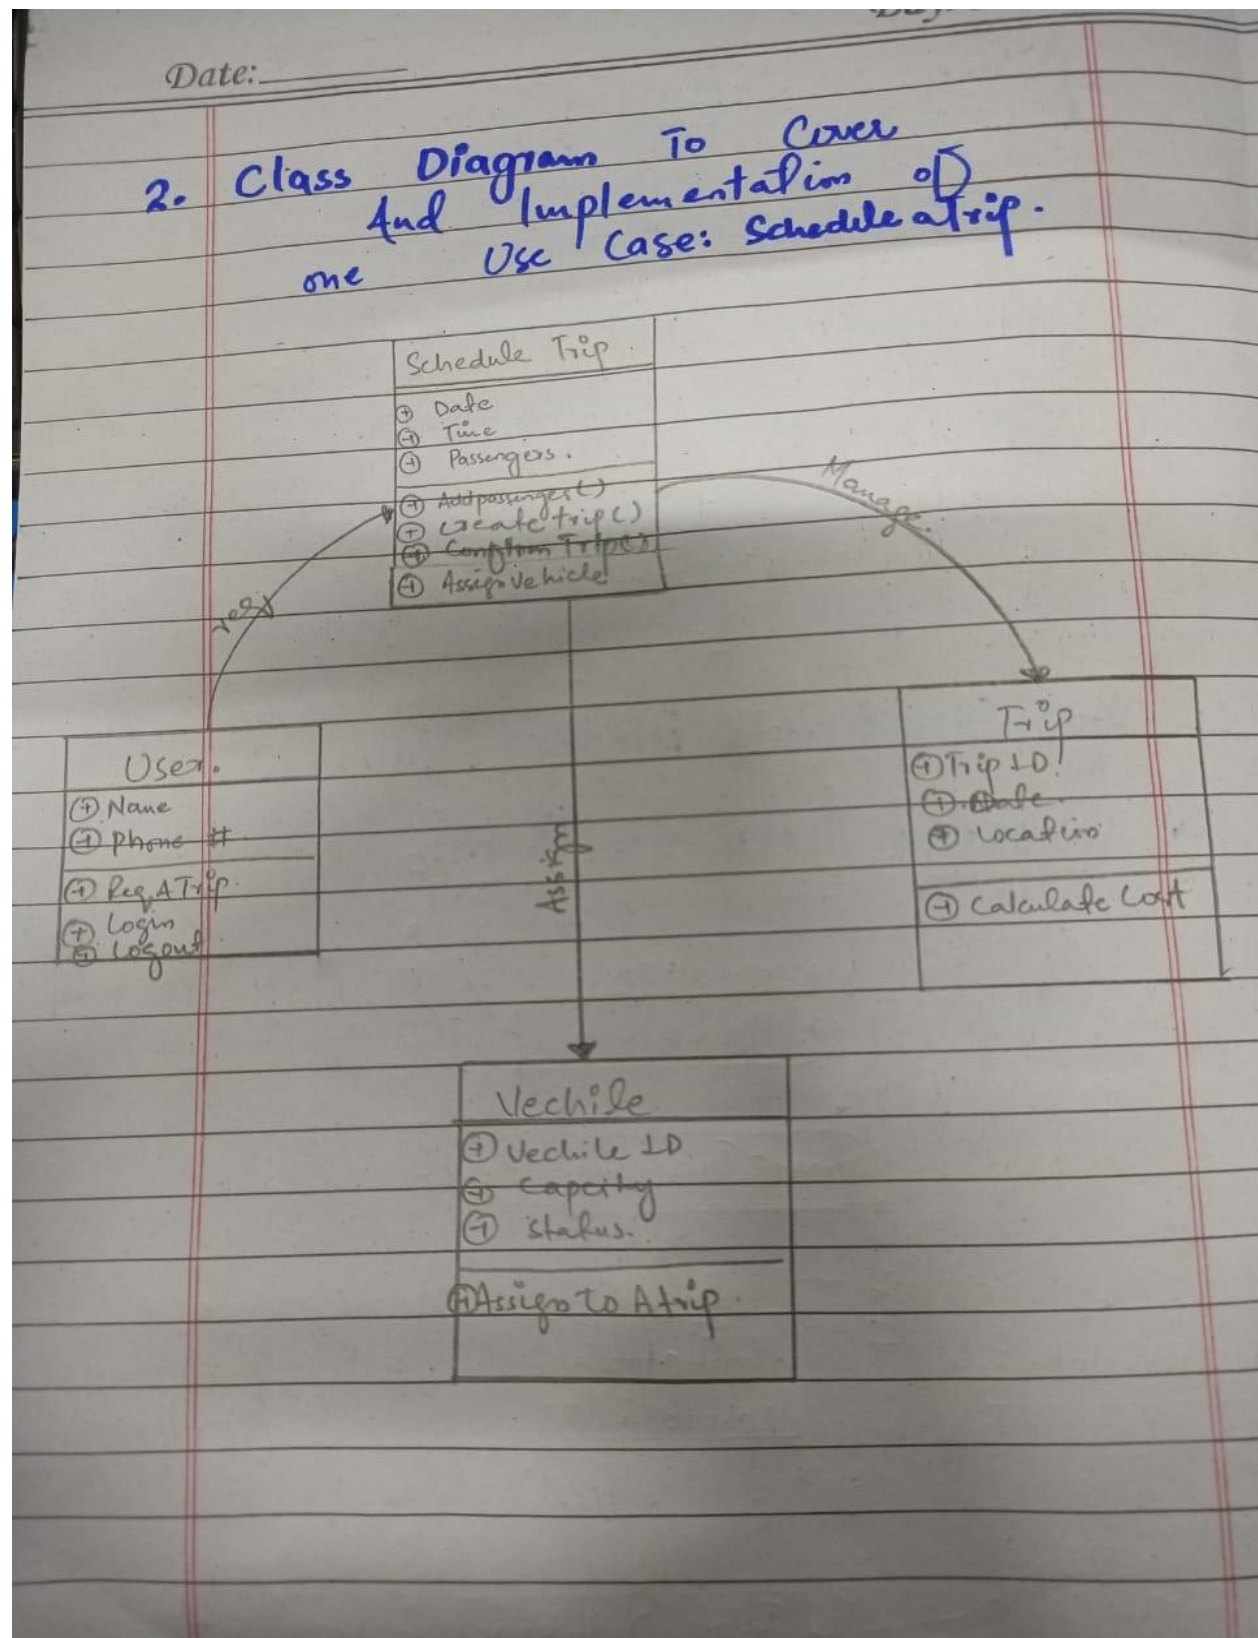 Date:
2. Class Diagram To Cover
And Implementation of
one Use Case: Schedule a Trip.
Schedule Trip.
+ Date
+ Time
+ Passengers.
+ Addpassenger()
+ create trip()
+ Confirm Trip()
+ Assign Vehicle
Manage.
req
User.
+ Name
+ Phone #
+ Req. A Trip.
+ Login
+ Logout
Trip
+ Trip ID
+ Date.
+ Location
+ Calculate Cost
Assign
Vechile
+ Vechile ID
+ Capcity
+ Status.
+ Assign to A trip.